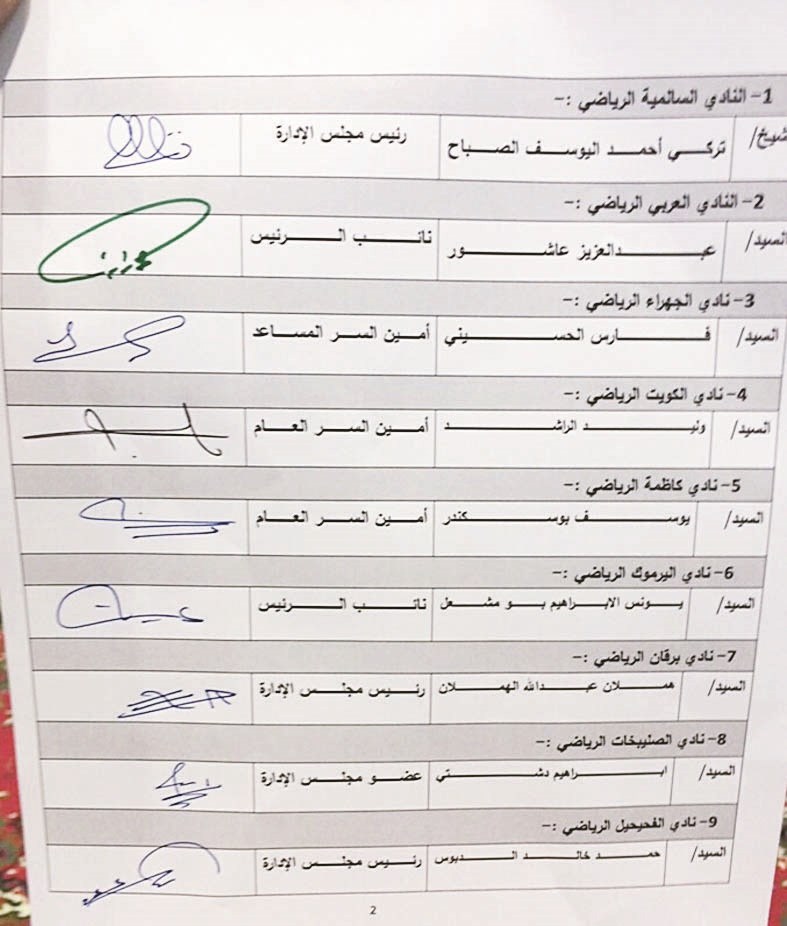 1- النادي السالمية الرياضي :-
شيخ/ تركي أحمد اليوسف الصباح رئيس مجلس الإدارة
2- النادي العربي الرياضي :-
السيد/ عبدالعزيز عاشور نائب الرئيس
3- نادي الجهراء الرياضي :-
السيد/ فارس الحسيني أمين السر المساعد
4- نادي الكويت الرياضي :-
السيد/ وليد الراشد أمين السر العام
5- نادي كاظمة الرياضي :-
السيد/ يوسف بوسكندر أمين السر العام
6- نادي اليرموك الرياضي :-
السيد/ يونس الابراهيم بو مشعل نائب الرئيس
7- نادي برقان الرياضي :-
السيد/ هملان عبدالله الهملان رئيس مجلس الإدارة
8- نادي الصليبخات الرياضي :-
السيد/ ابراهيم دشتي عضو مجلس الإدارة
9- نادي الفحيحيل الرياضي :-
السيد/ حمد خالد الدبوس رئيس مجلس الإدارة
2